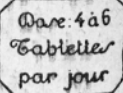 Dose: 4 à 6
Tablettes
par jour